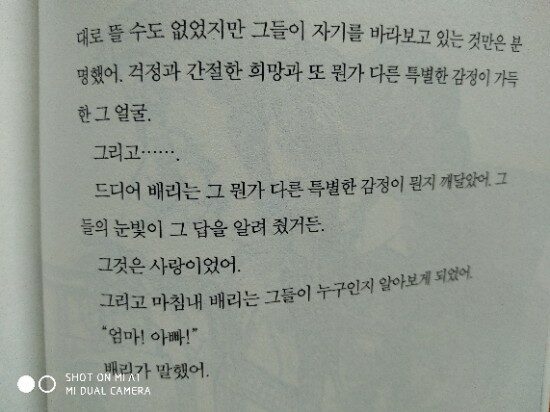 대로 뜰 수도 없었지만 그들이 자기를 바라보고 있는 것만은 분
명했어. 걱정과 간절한 희망과 또 뭔가 다른 특별한 감정이 가득
한 그 얼굴.
그리고…….
드디어 배리는 그 뭔가 다른 특별한 감정이 뭔지 깨달았어. 그
들의 눈빛이 그 답을 알려 줬거든.
그것은 사랑이었어.
그리고 마침내 배리는 그들이 누구인지 알아보게 되었어.
“엄마! 아빠!”
배리가 말했어.
SHOT ON MI A1
MI DUAL CAMERA